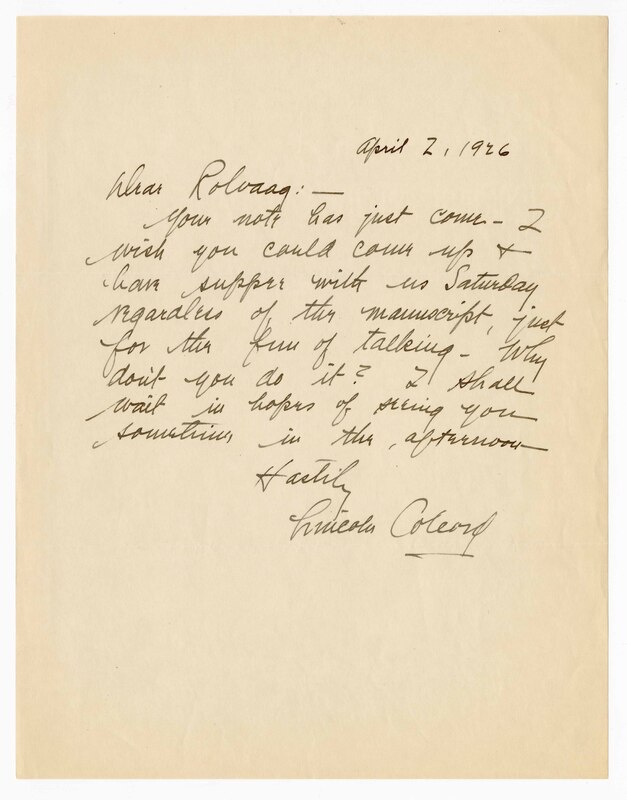 April 2, 1926
Dear Rolvaag: —
Your note has just come — I
wish you could come up &
have supper with us Saturday
regardless of the manuscript, just
for the fun of talking — Why
don't you do it? I shall
wait in hopes of seeing you
sometime in the afternoon —
Hastily
Lincoln Colcord